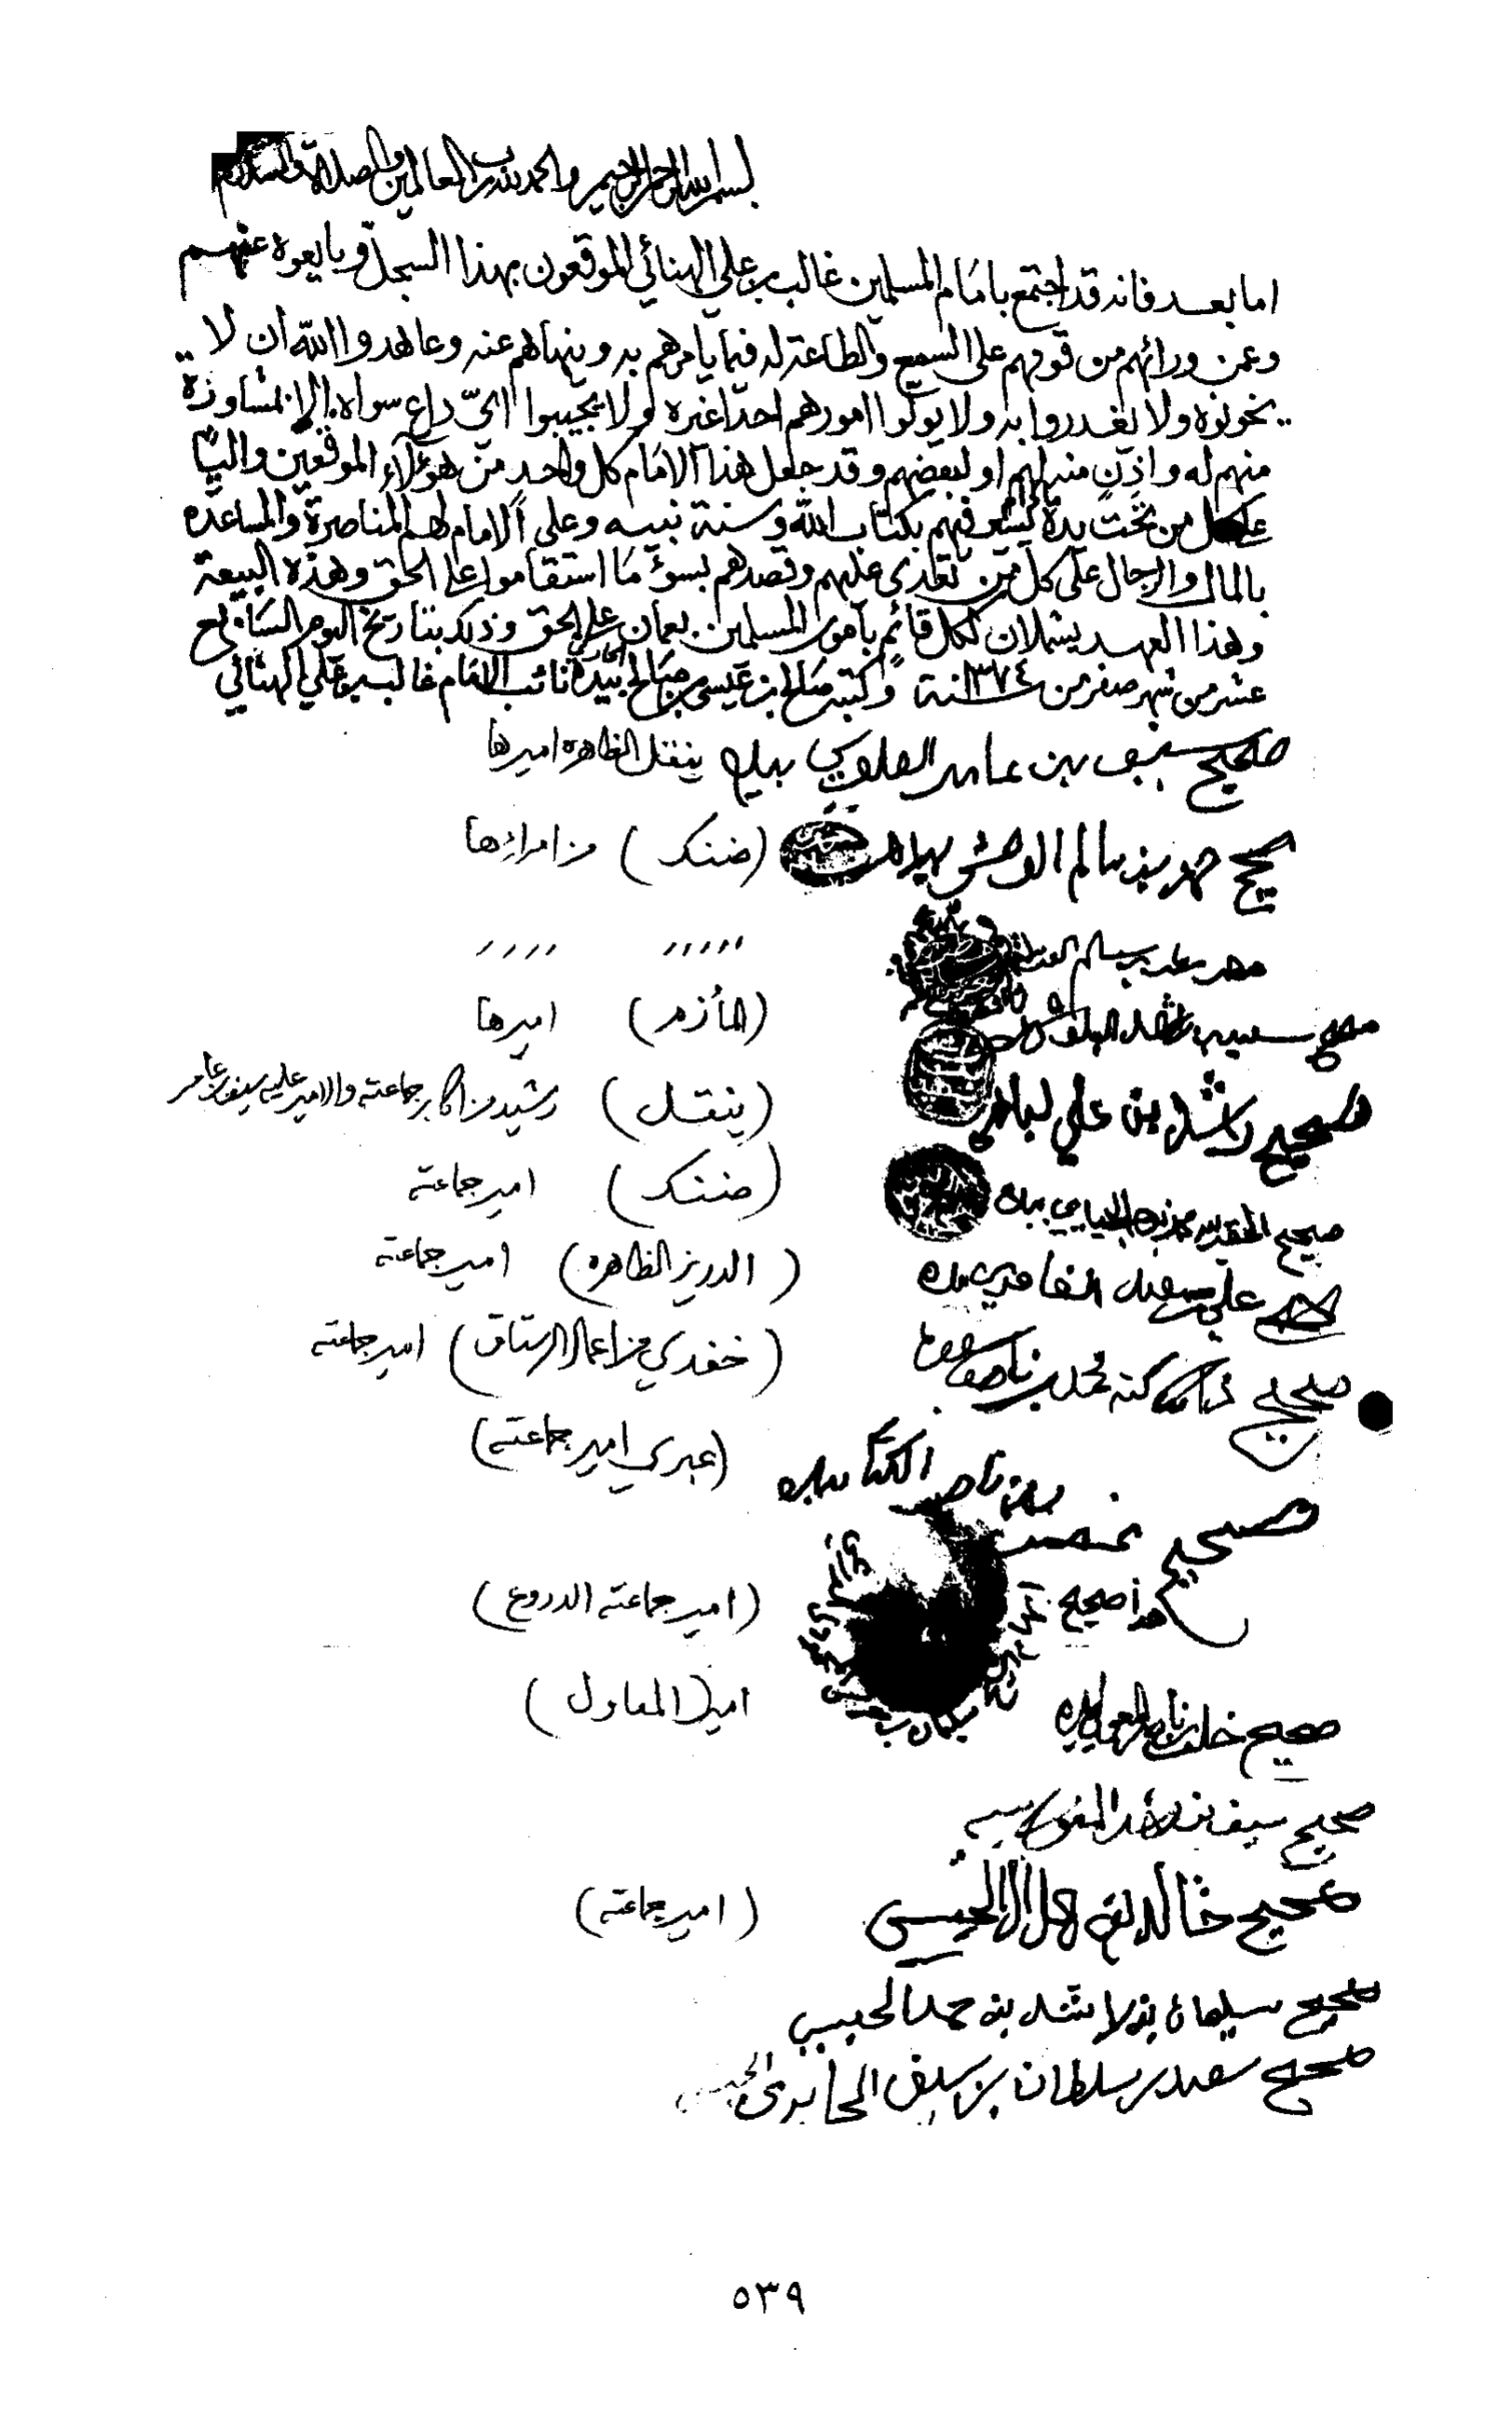 بسم الله الرحمن الرحيم والحمد لله رب العالمين والصلاة والسلام
اما بعد فانه قد اجتمع بامام المسلمين غالب بن علي الهنائي الموقعون بهذا السجل وبايعوه عنهم
وعمن ورائهم من قومهم على السمع والطاعة له فيما يامرهم به وينهاهم عنه وعاهدوا الله أن لا
يخونوه ولا يغدروا به ولا يولوا امورهم احدا غيره ولا يجيبوا اي داع سواه إلا بمشاورة
منهم له واذن منه لهم او لبعضهم وقد جعل هذا الامام كل واحد من هؤلاء الموقعين واليا
على كل من تحت يده ليسير فيهم بكتاب الله وسنة نبيه وعلى الامام لهم المناصرة والمساعده
بالمال والرجال على كل من تعدى عليهم وقصدهم بسوء ما استقاموا على الحق وهذه البيعة
وهذا العهد يشملان لكل قائم بامور المسلمين بعمان على الحق وذلك بتاريخ اليوم السابع
عشر من شهر صفر من سنة ١٣٧٤ وكتبه صالح بن عيسى بن صالح بيده نائب الامام غالب بن علي الهنائي
صحيح سيف بن عامر العلوي بيده ينقل الظاهره اميرها
صحيح بن سالم بيده (ضنك) من امراءها
بن سالم ,,,,, ,,,,
صحيح (المأزم) اميرها
صحيح راشد بن علي بيده (ينقل) رشيد من اكابر جماعته والامير عليه سيف بن عامر
صحيح بيده (ضنك) امير جماعته
صحيح علي بن سعيد الغافري بيده (الدريز الظاهره) امير جماعته
صحيح ذلك كتبه محمد بن ناصر (خفدي من اعمال الرستاق) امير جماعته
بن ناصر بيده (عبري امير جماعته)
صحيح
هذا صحيح (امير جماعته الدروع)
صحيح خلف بن ناصر المعولي بيده امير (المعاول)
صحيح سيف بن بيده
صحيح خالد بن هلال الحبسي (امير جماعته)
صحيح سليمان بن راشد بن حمد الحبسي
صحيح سعيد بن سلطان بن سيف الجابري
٥٣٩